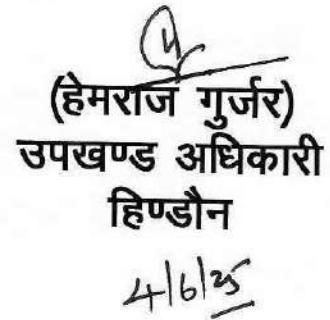 (हेमराज गुर्जर)
उपखण्ड अधिकारी
हिण्डौन
4/6/25